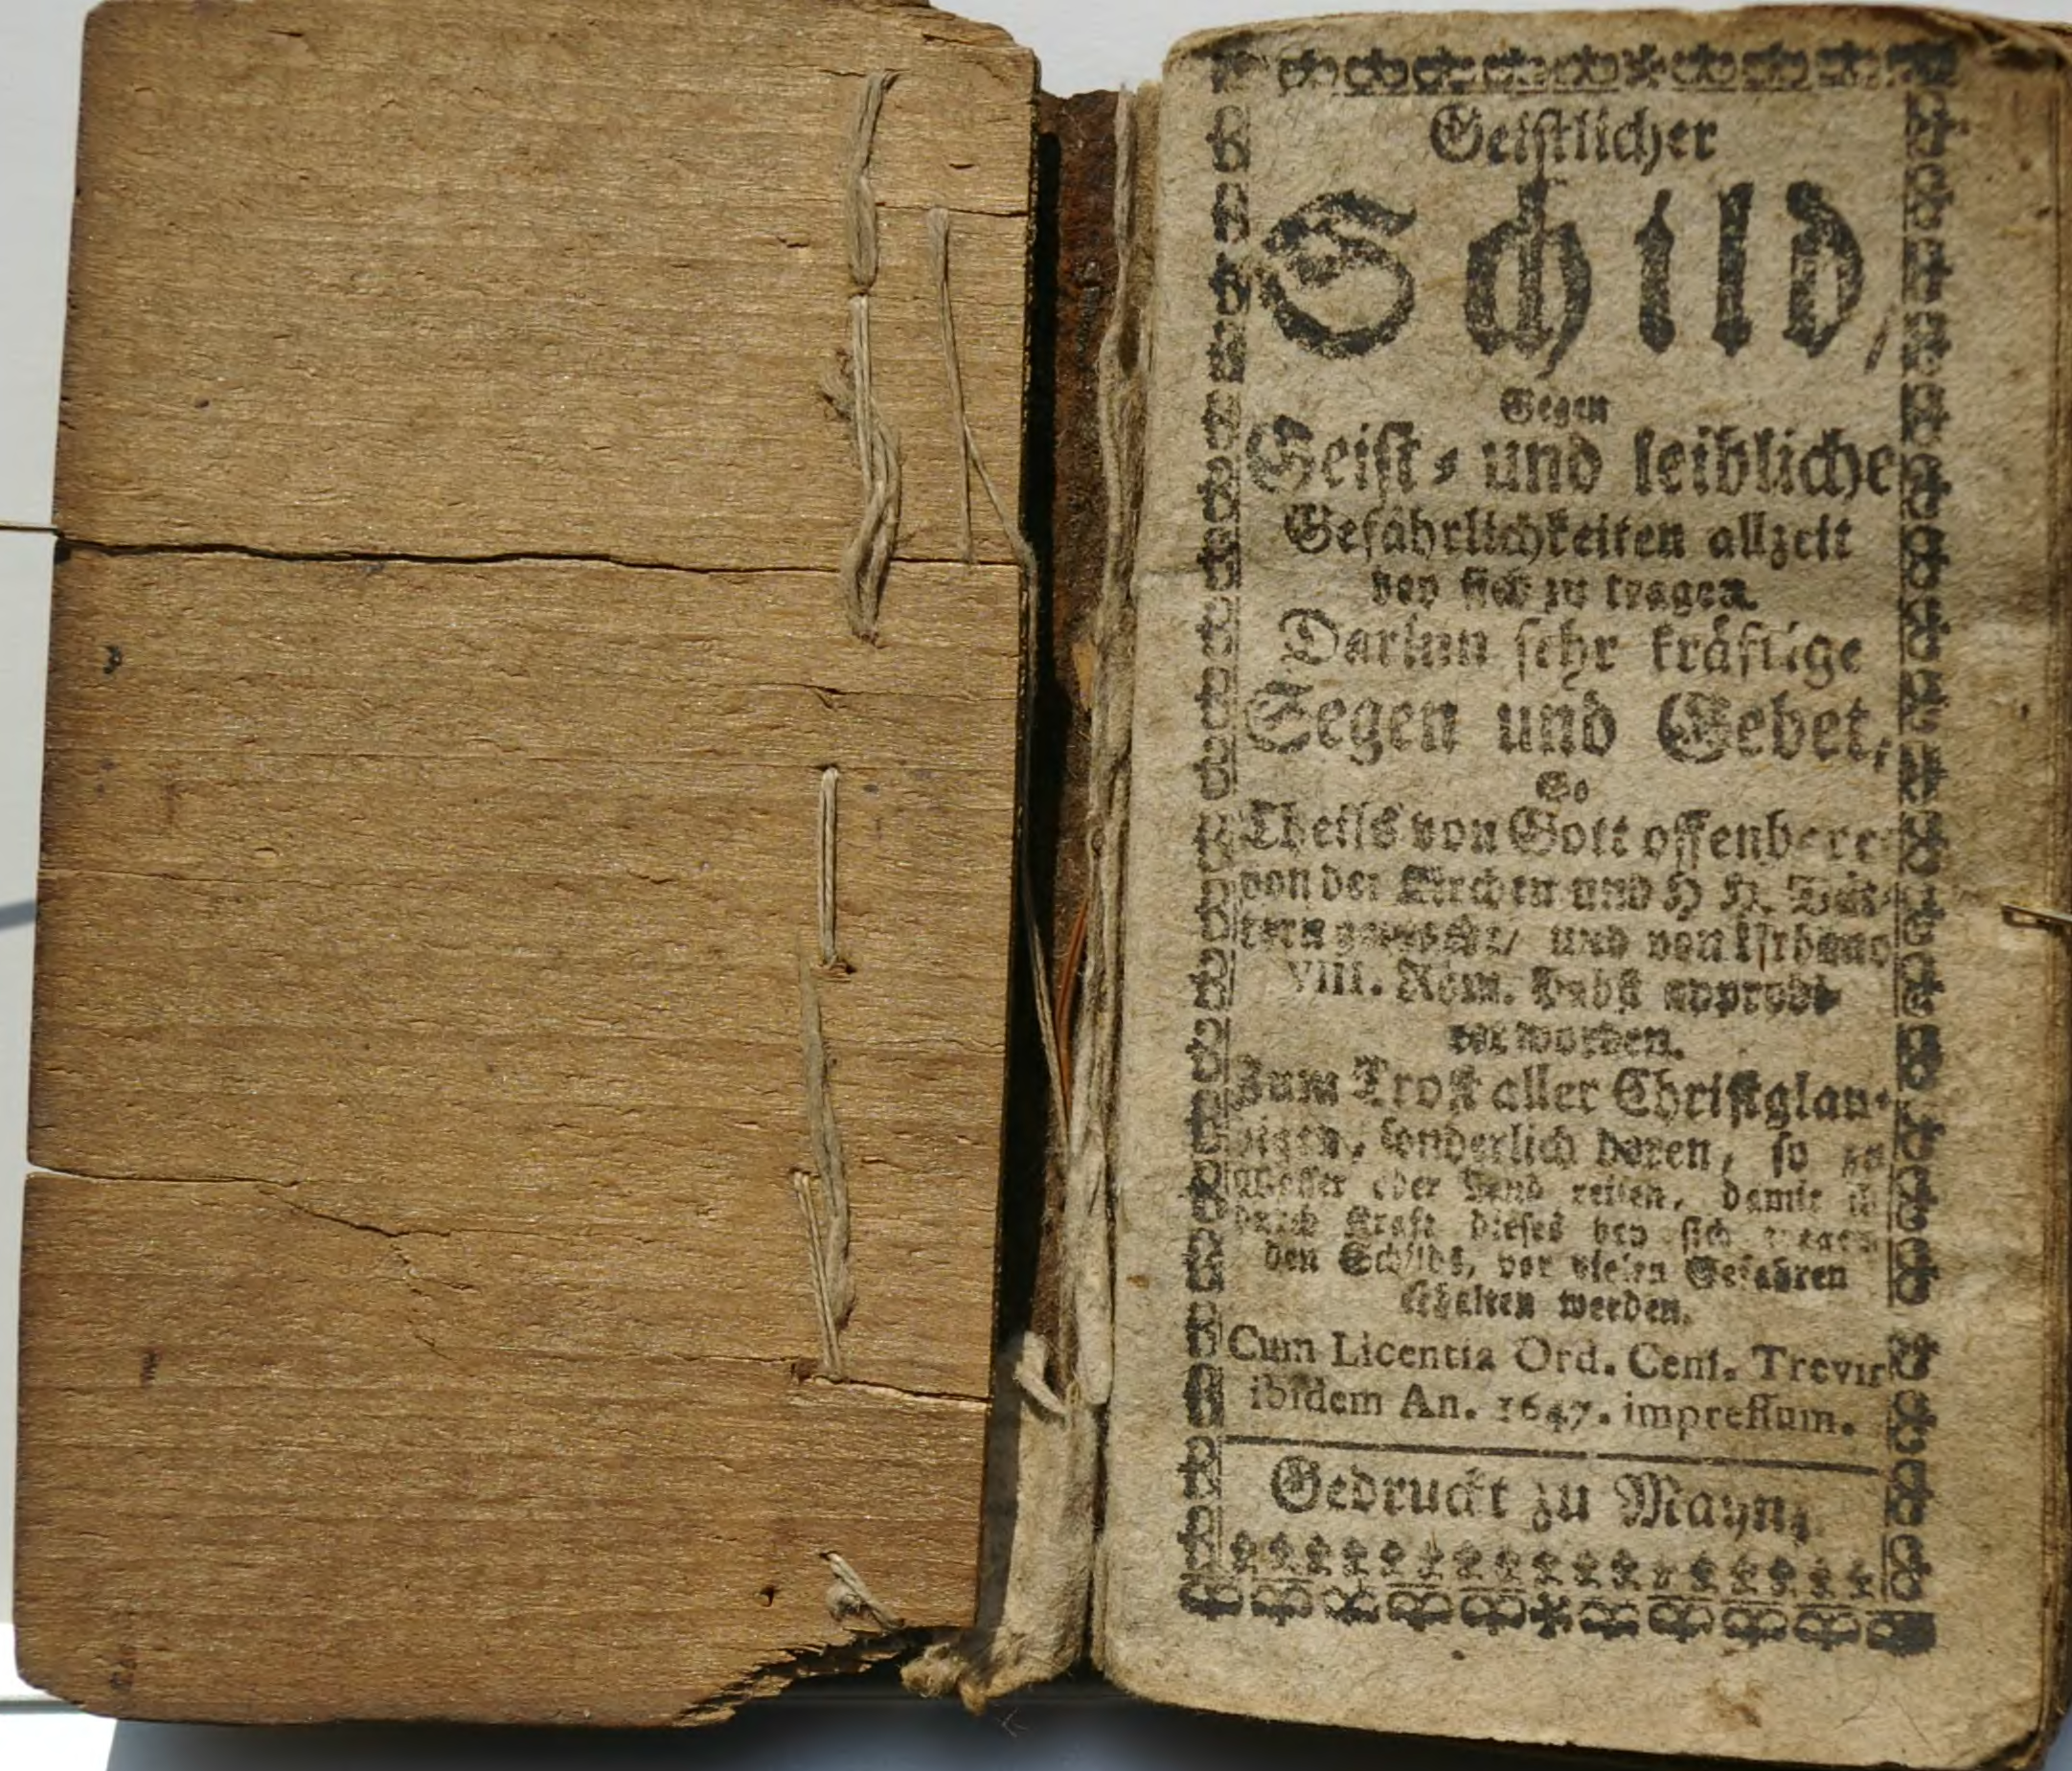 Geistlicher
Schild,
Gegen
Geist- und leibliche
Gefährlichkeiten allzeit
bey sich zu tragen.
Darinn sehr kräftige
Segen und Gebet,
So
Theils von Gott offenbere
von der Kirchen und H H. Vät-
tern und von Urbano
VIII. Röm. Pabst approbi-
ret worden.
Zum Trost aller Christglau-
bigen, sonderlich deren, so zu
Wasser oder Land reisen, damit
durch Kraft dieses bey sich tragen
den Schilds, vor vielen Gefahren
erhalten werden.
Cum Licentia Ord. Cens. Trevir
ibidem An. 1647. impressum.
Gedruckt zu Maynz.